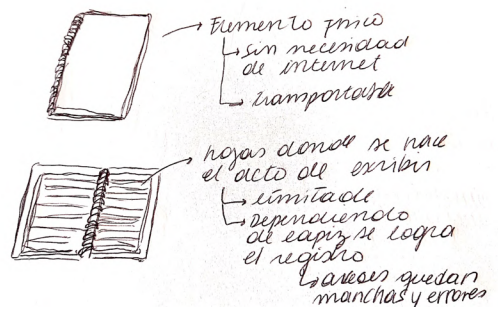 Elemento físico
sin necesidad
de internet
transportable
hojas donde se hace
el acto de escribir
limitada
Dependiendo
de lapiz se logra
el registro
aveces quedan
manchas y errores